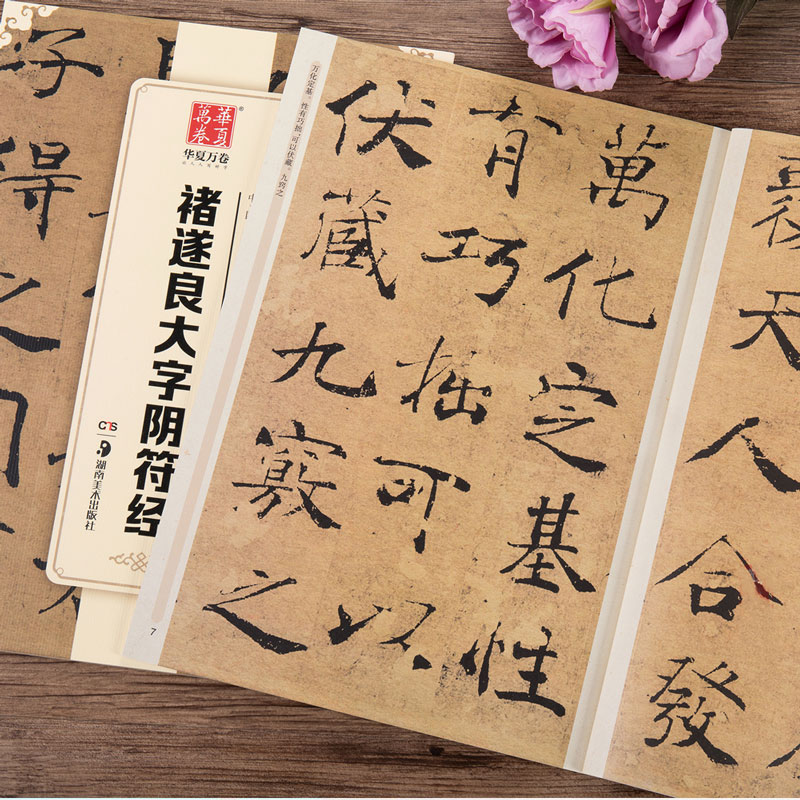 覆天人合發
萬化定基性
有巧拙可以
伏藏九竅之
万化定基。性有巧拙，可以伏藏。九窍之
7
華夏
萬卷
®
华夏万卷
让人人写好字
褚遂良大字阴符经
CTS
湖南美术出版社
好得之